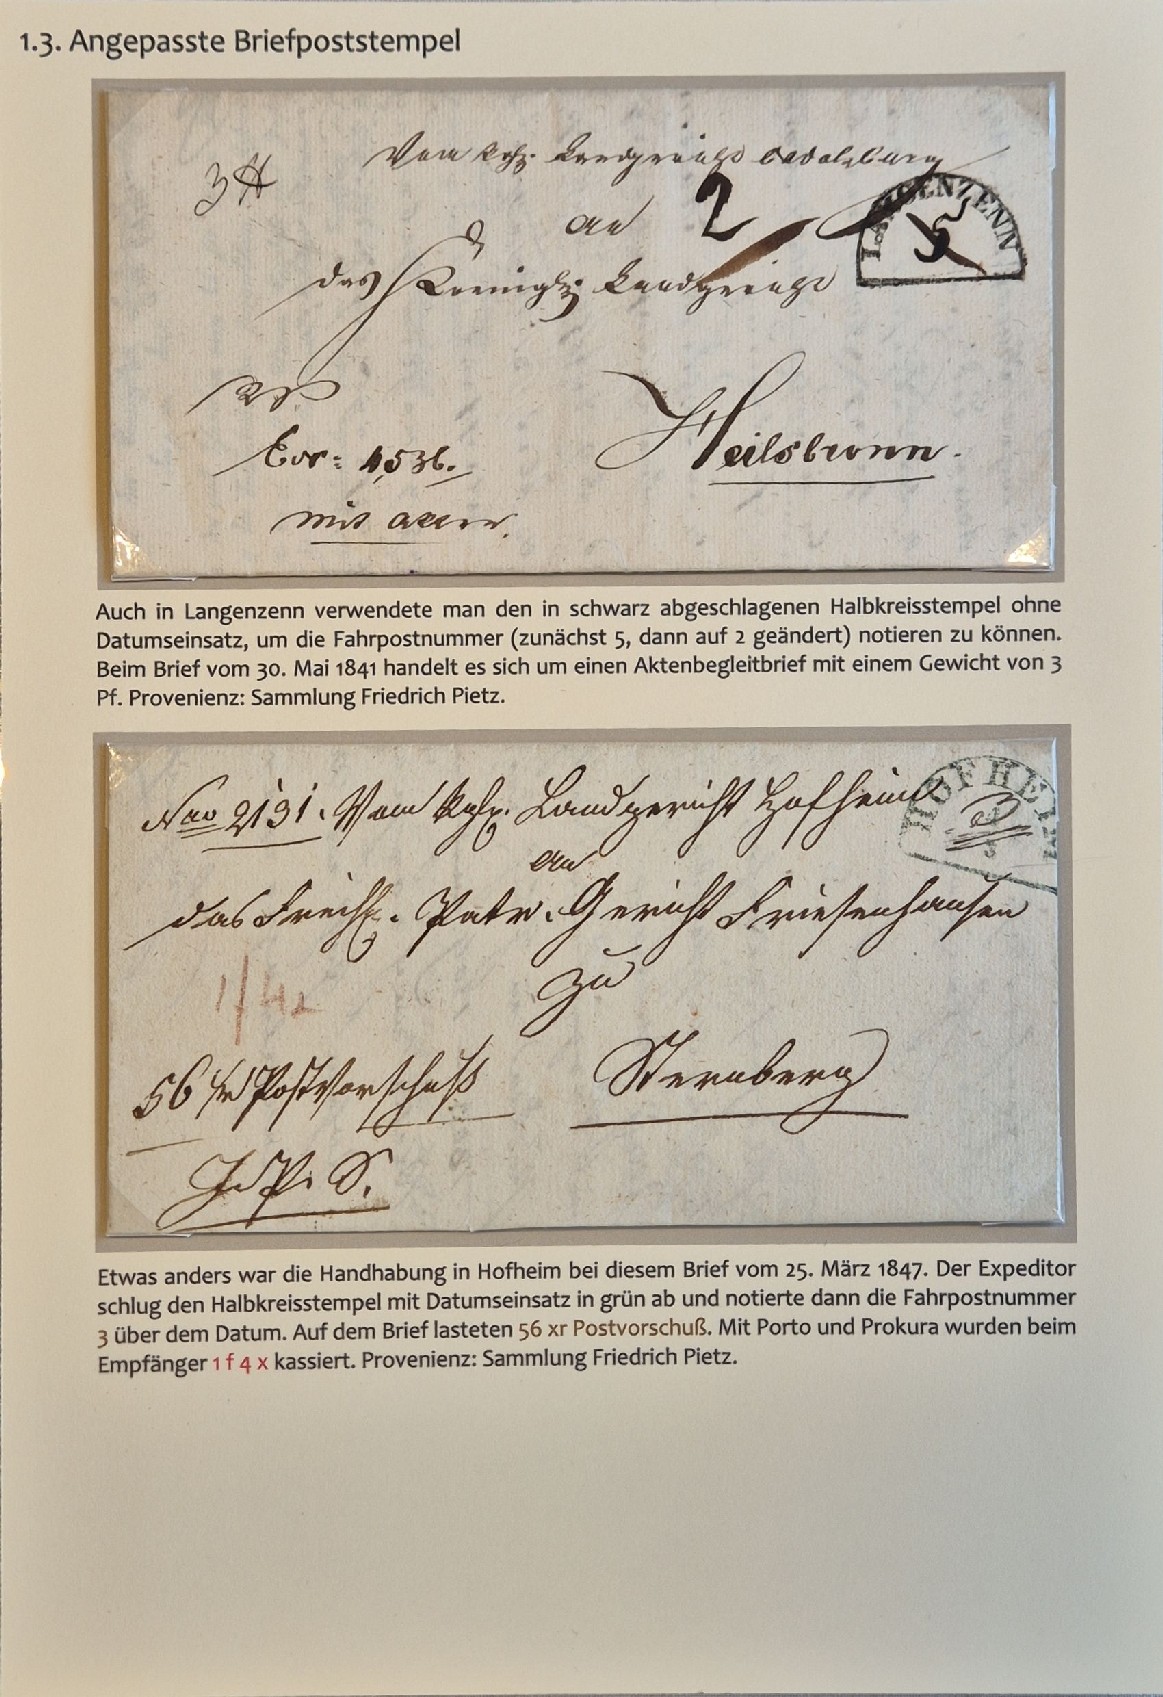 1.3. Angepasste Briefpoststempel
Vom Kgh. Landgericht Cadolzburg
3 ℔
an 2
LANGENZENN
5
das Königh. Landgericht
Heilsbronn.
Exp: 4536.
mit Akten.
Auch in Langenzenn verwendete man den in schwarz abgeschlagenen Halbkreisstempel ohne
Datumseinsatz, um die Fahrpostnummer (zunächst 5, dann auf 2 geändert) notieren zu können.
Beim Brief vom 30. Mai 1841 handelt es sich um einen Aktenbegleitbrief mit einem Gewicht von 3
Pf. Provenienz: Sammlung Friedrich Pietz.
HOFHEIM
3
Nro 2131. Vom Kgh. Landgericht Hofheim
an
das Freih. Patr. Gericht Friesenhausen
zu
1f 4x
Sternberg
56 xr Postvorschuß
J. P. S.
Etwas anders war die Handhabung in Hofheim bei diesem Brief vom 25. März 1847. Der Expeditor
schlug den Halbkreisstempel mit Datumseinsatz in grün ab und notierte dann die Fahrpostnummer
3 über dem Datum. Auf dem Brief lasteten 56 xr Postvorschuß. Mit Porto und Prokura wurden beim
Empfänger 1 f 4 x kassiert. Provenienz: Sammlung Friedrich Pietz.